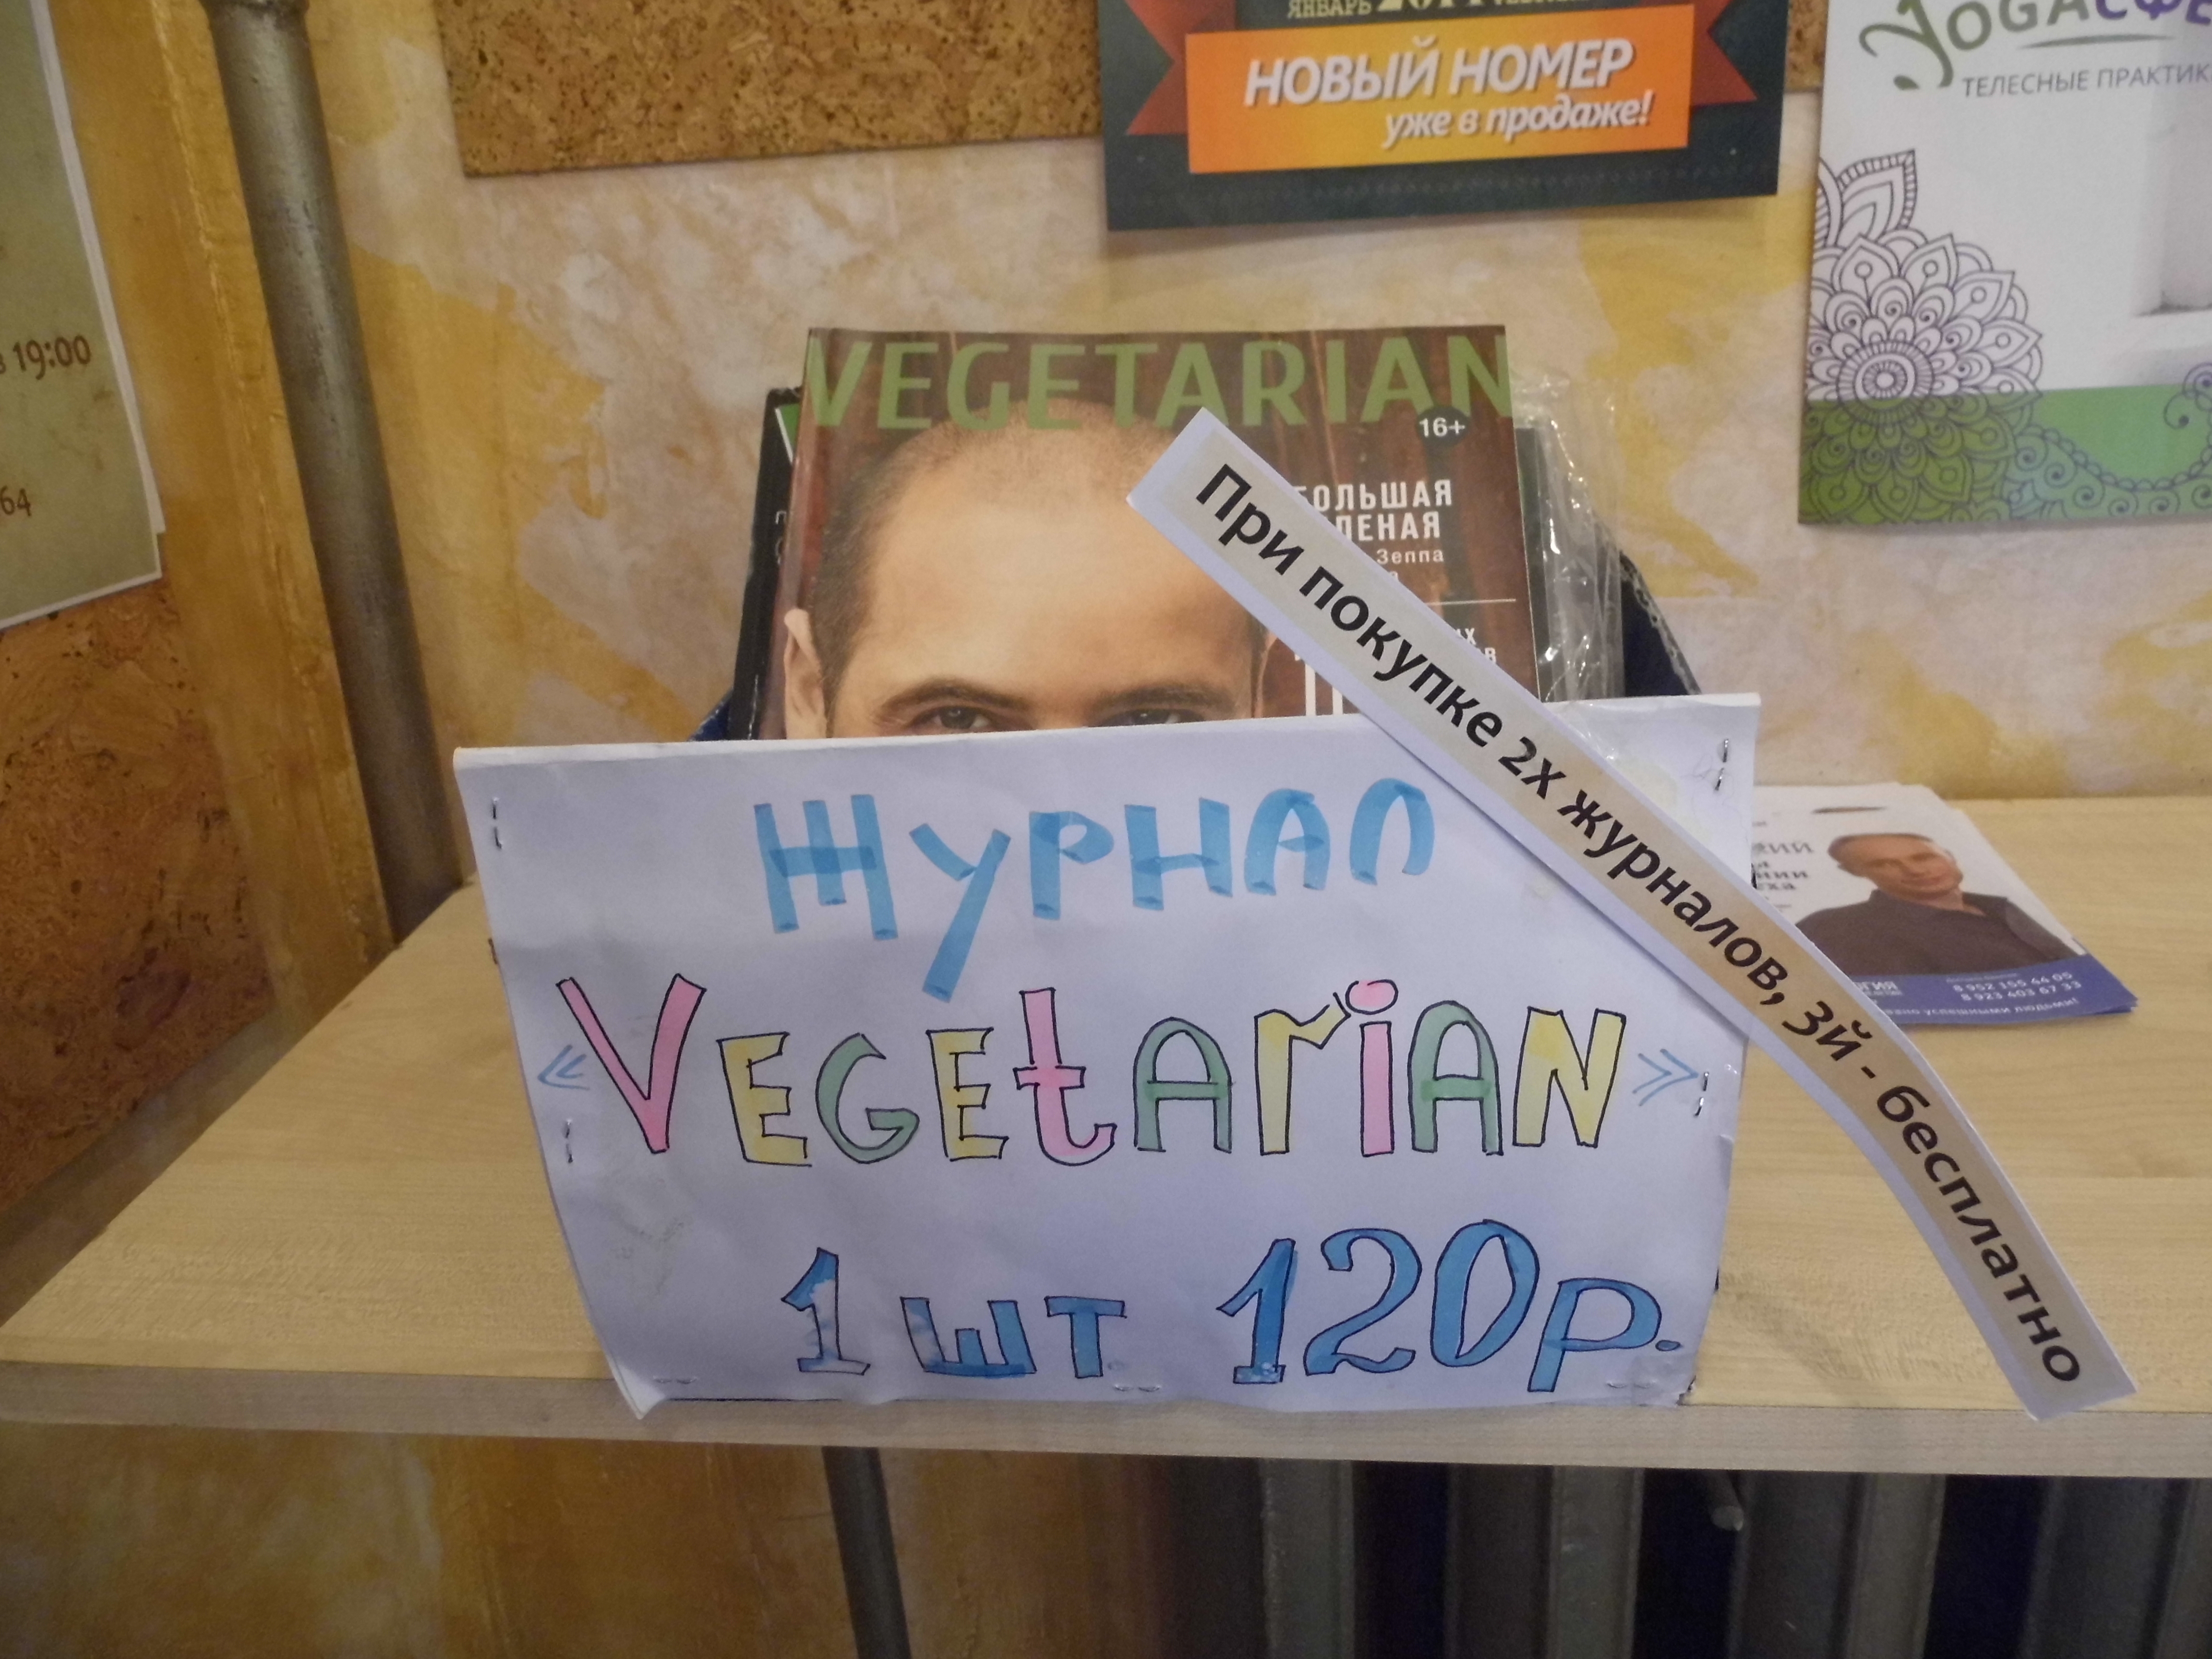 ЯНВАРЬ
НОВЫЙ НОМЕР
уже в продаже!
YOGAСФЕ
ТЕЛЕСНЫЕ ПРАКТИК
в 19:00
64
VEGETARIAN
16+
БОЛЬШАЯ
ЛЕНАЯ
Зеппа
При покупке 2х журналов, 3й - бесплатно
Журнал
«VEGEtARiAN»
1 шт 120р.
8 952 155 44 05
8 923 403 67 33
успешными людьми!